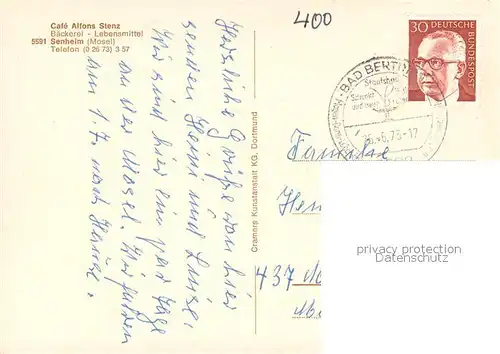 Café Alfons Stenz
Bäckerei - Lebensmittel
5591 Senheim (Mosel)
Telefon (0 26 73) 3 57
400
Herzliche Grüße von hier
senden Heini und Luise.
Wir sind hier ein paar Tage
an der Mosel. Wir fahren
am 1.7. nach Hause.
Cramers Kunstanstalt KG, Dortmund
30
DEUTSCHE BUNDESPOST
BAD BERT
Staatsbad
25.-6.73-17
Familie
Hen
437
privacy protection
Ansichtskartenversand.com